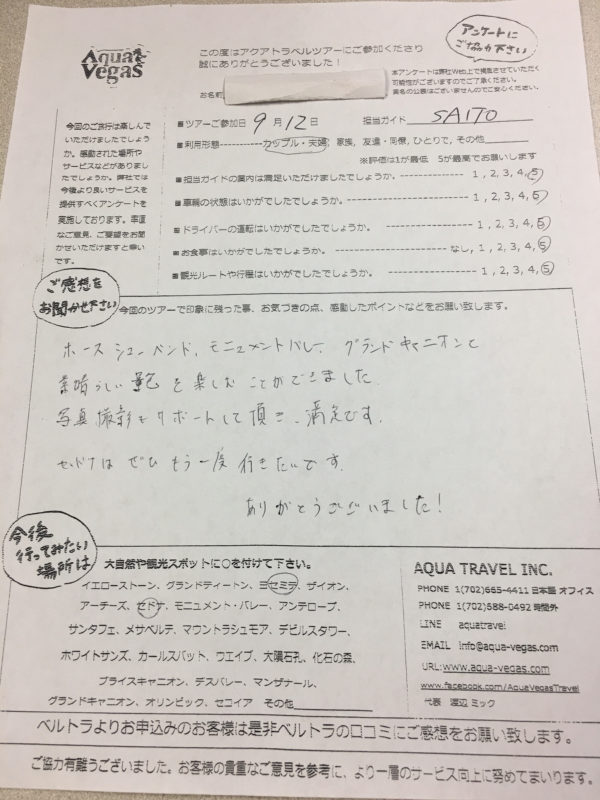 Aqua
Vegas
この度はアクアトラベルツアーにご参加くださり
誠にありがとうございました！
アンケートに
ご協力下さい
お名前
本アンケートは弊社Web上で掲載させていただく
可能性がございますのでご了承ください。
実名の公表はございませんのでご安心ください。
今回のご旅行は楽しんで
いただけましたでしょう
か。感動された場所や
サービスなどがありまし
たでしょうか。弊社では
今後より良いサービスを
提供すべくアンケートを
実施しております。率直
なご意見、ご要望をお聞
かせいただけますと幸い
です。
■ツアーご参加日 9 月 12 日 担当ガイド SAITO
■利用形態----------カップル・夫婦, 家族, 友達・同僚, ひとりで, その他
※評価は1が最低 5が最高でお願いします
■担当ガイドの案内は満足いただけましたでしょうか。 1, 2, 3, 4, 5
■車輌の状態はいかがでしたでしょうか。 1, 2, 3, 4, 5
■ドライバーの運転はいかがでしたでしょうか。 1, 2, 3, 4, 5
■お食事はいかがでしたでしょうか。 なし, 1, 2, 3, 4, 5
■観光ルートや行程はいかがでしたでしょうか。 1, 2, 3, 4, 5
ご感想を
お聞かせ下さい
今回のツアーで印象に残った事、お気づきの点、感動したポイントなどをお願い致します。
ホースシューベンド、モニュメントバレー、グランドキャニオンと
素晴らしい景色を楽しむことができました。
写真撮影もサポートして頂き、満足です。
セドナはぜひもう一度行きたいです。
ありがとうございました！
今後
行ってみたい
場所は
大自然や観光スポットに○を付けて下さい。
イエローストーン、グランドティートン、ヨセミテ、ザイオン、
アーチーズ、セドナ、モニュメント・バレー、アンテロープ、
サンタフェ、メサベルテ、マウントラシュモア、デビルスタワー、
ホワイトサンズ、カールスバット、ウエイブ、大隕石孔、化石の森、
ブライスキャニオン、デスバレー、マンザナール、
グランドキャニオン、オリンピック、セコイア その他
AQUA TRAVEL INC.
PHONE 1(702)665-4411 日本語オフィス
PHONE 1(702)688-0492 時間外
LINE aquatravel
EMAIL info@aqua-vegas.com
URL:www.aqua-vegas.com
www.facebook.com/AquaVegasTravel
代表 渡辺 ミック
ベルトラよりお申込みのお客様は是非ベルトラの口コミにご感想をお願い致します。
ご協力有難うございました。お客様の貴重なご意見を参考に、より一層のサービス向上に努めてまいります。